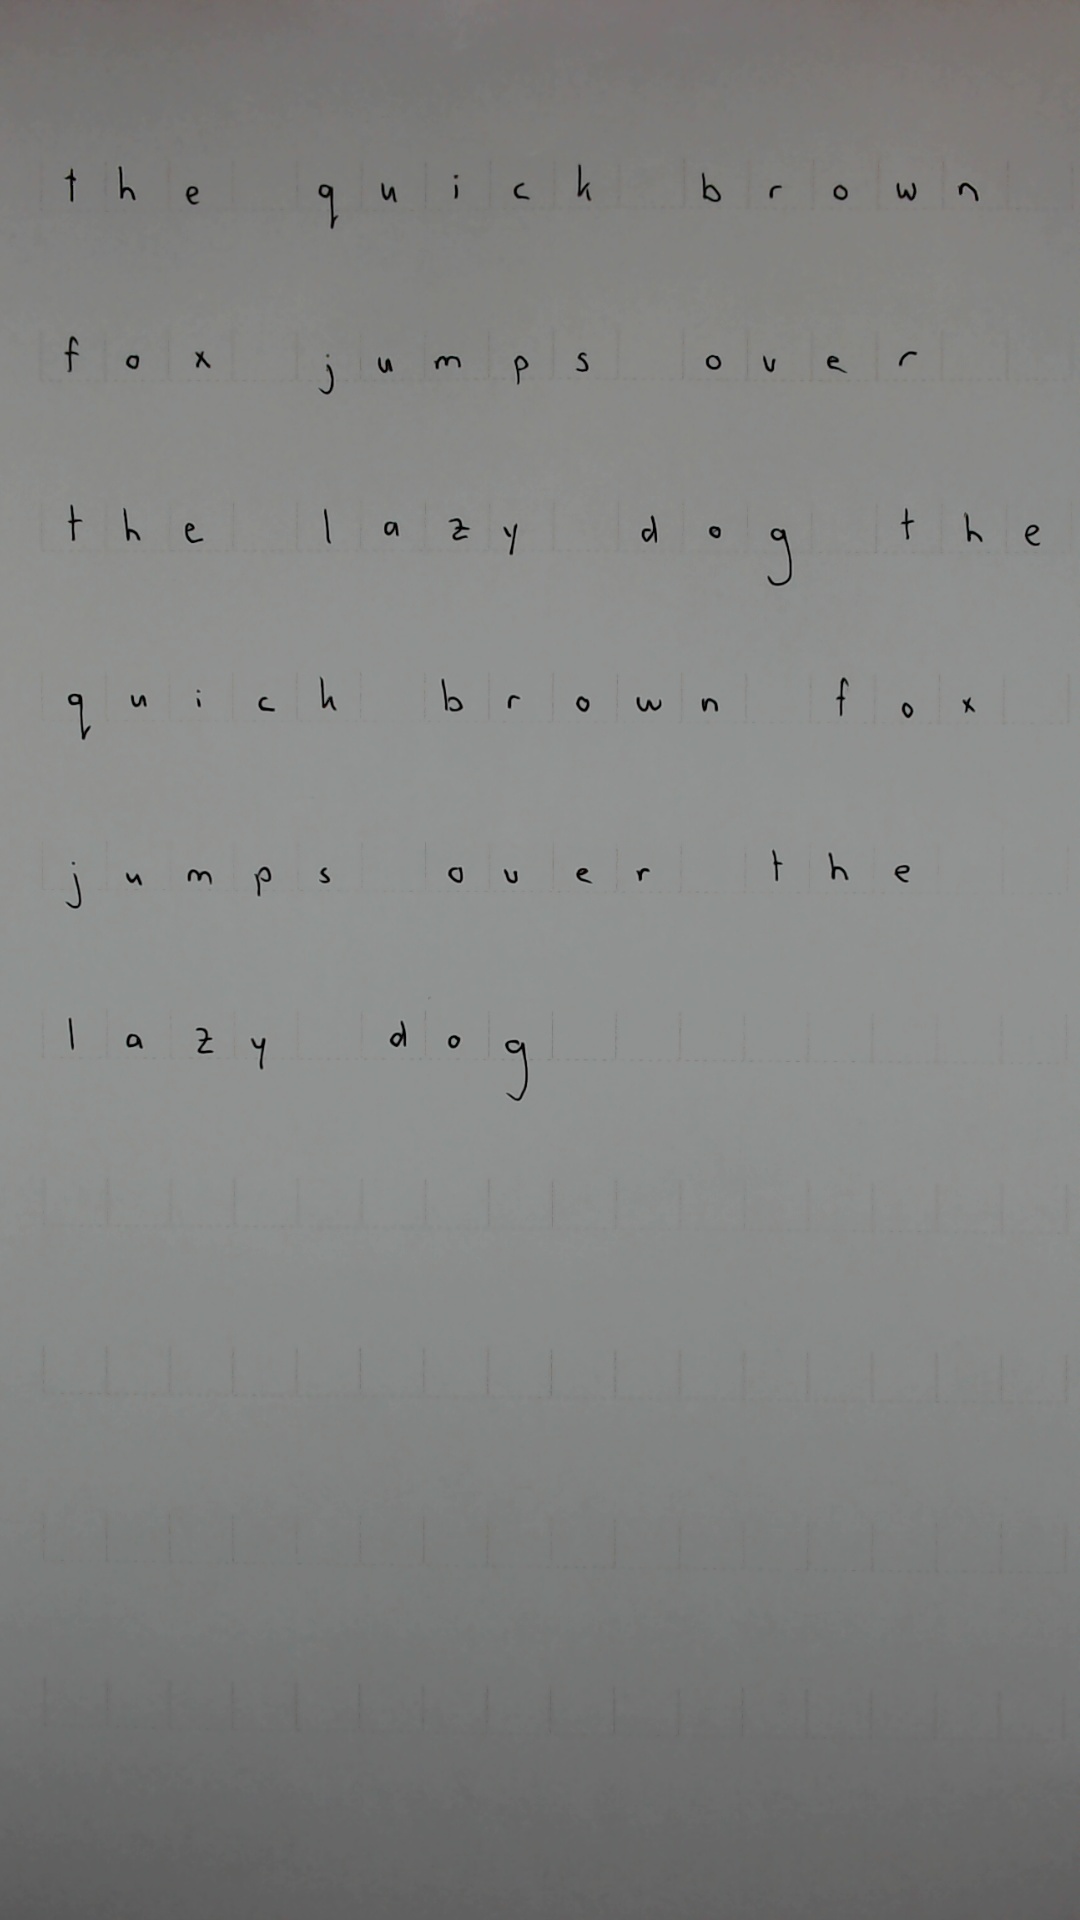 the quick brown
fox jumps over
the lazy dog the
quick brown fox
jumps over the
lazy dog